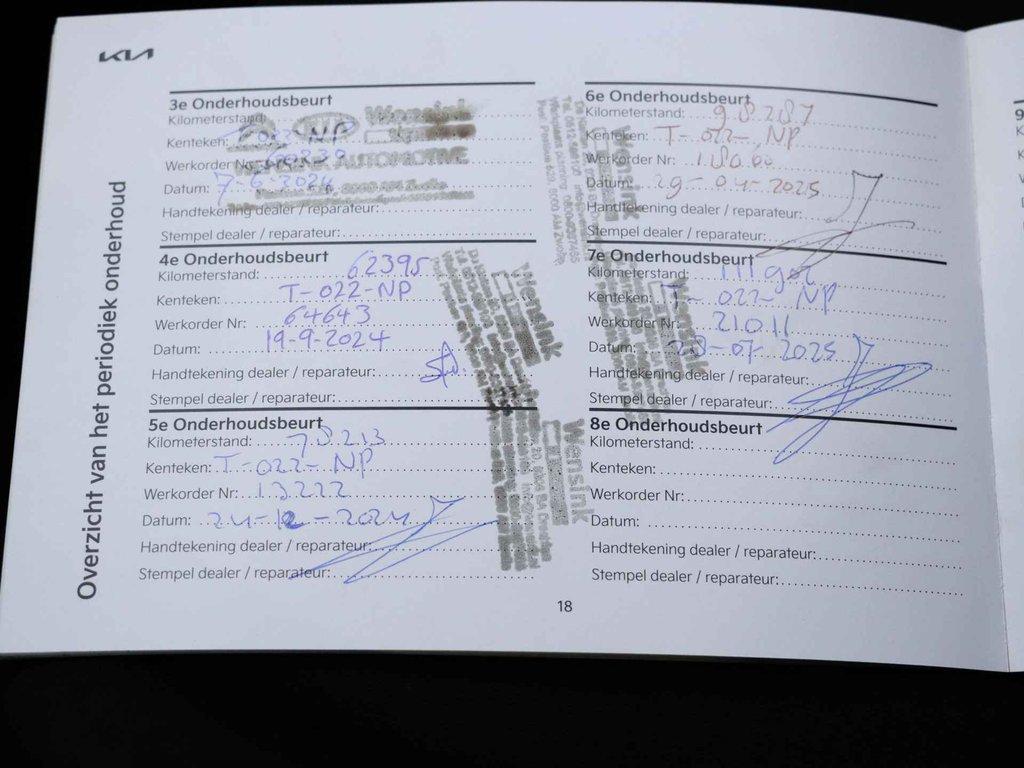 KIA
Overzicht van het periodiek onderhoud
3e Onderhoudsbeurt
Kilometerstand:
Kenteken: NP
Wensink
Werkorder Nr:
AUTOMOTIVE
Datum: 7-6-2024
Handtekening dealer / reparateur:
Stempel dealer / reparateur:
4e Onderhoudsbeurt
Kilometerstand: 62395
Kenteken: T-022-NP
Werkorder Nr: 64643
Datum: 19-9-2024
Handtekening dealer / reparateur:
Stempel dealer / reparateur:
Wensink
5e Onderhoudsbeurt
Kilometerstand: 78.213
Kenteken: T-022-NP
Werkorder Nr: 13222
Datum: 24-12-2024
Handtekening dealer / reparateur:
Stempel dealer / reparateur:
Wensink
6e Onderhoudsbeurt
Kilometerstand: 98.287
Kenteken: T-022-NP
Werkorder Nr: 18060
Datum: 29-04-2025
Handtekening dealer / reparateur:
Stempel dealer / reparateur:
Wensink
7e Onderhoudsbeurt
Kilometerstand:
Kenteken: T-022-NP
Werkorder Nr: 21011
Datum: 28-07-2025
Handtekening dealer / reparateur:
Stempel dealer / reparateur:
Wensink
8e Onderhoudsbeurt
Kilometerstand:
Kenteken:
Werkorder Nr:
Datum:
Handtekening dealer / reparateur:
Stempel dealer / reparateur:
18